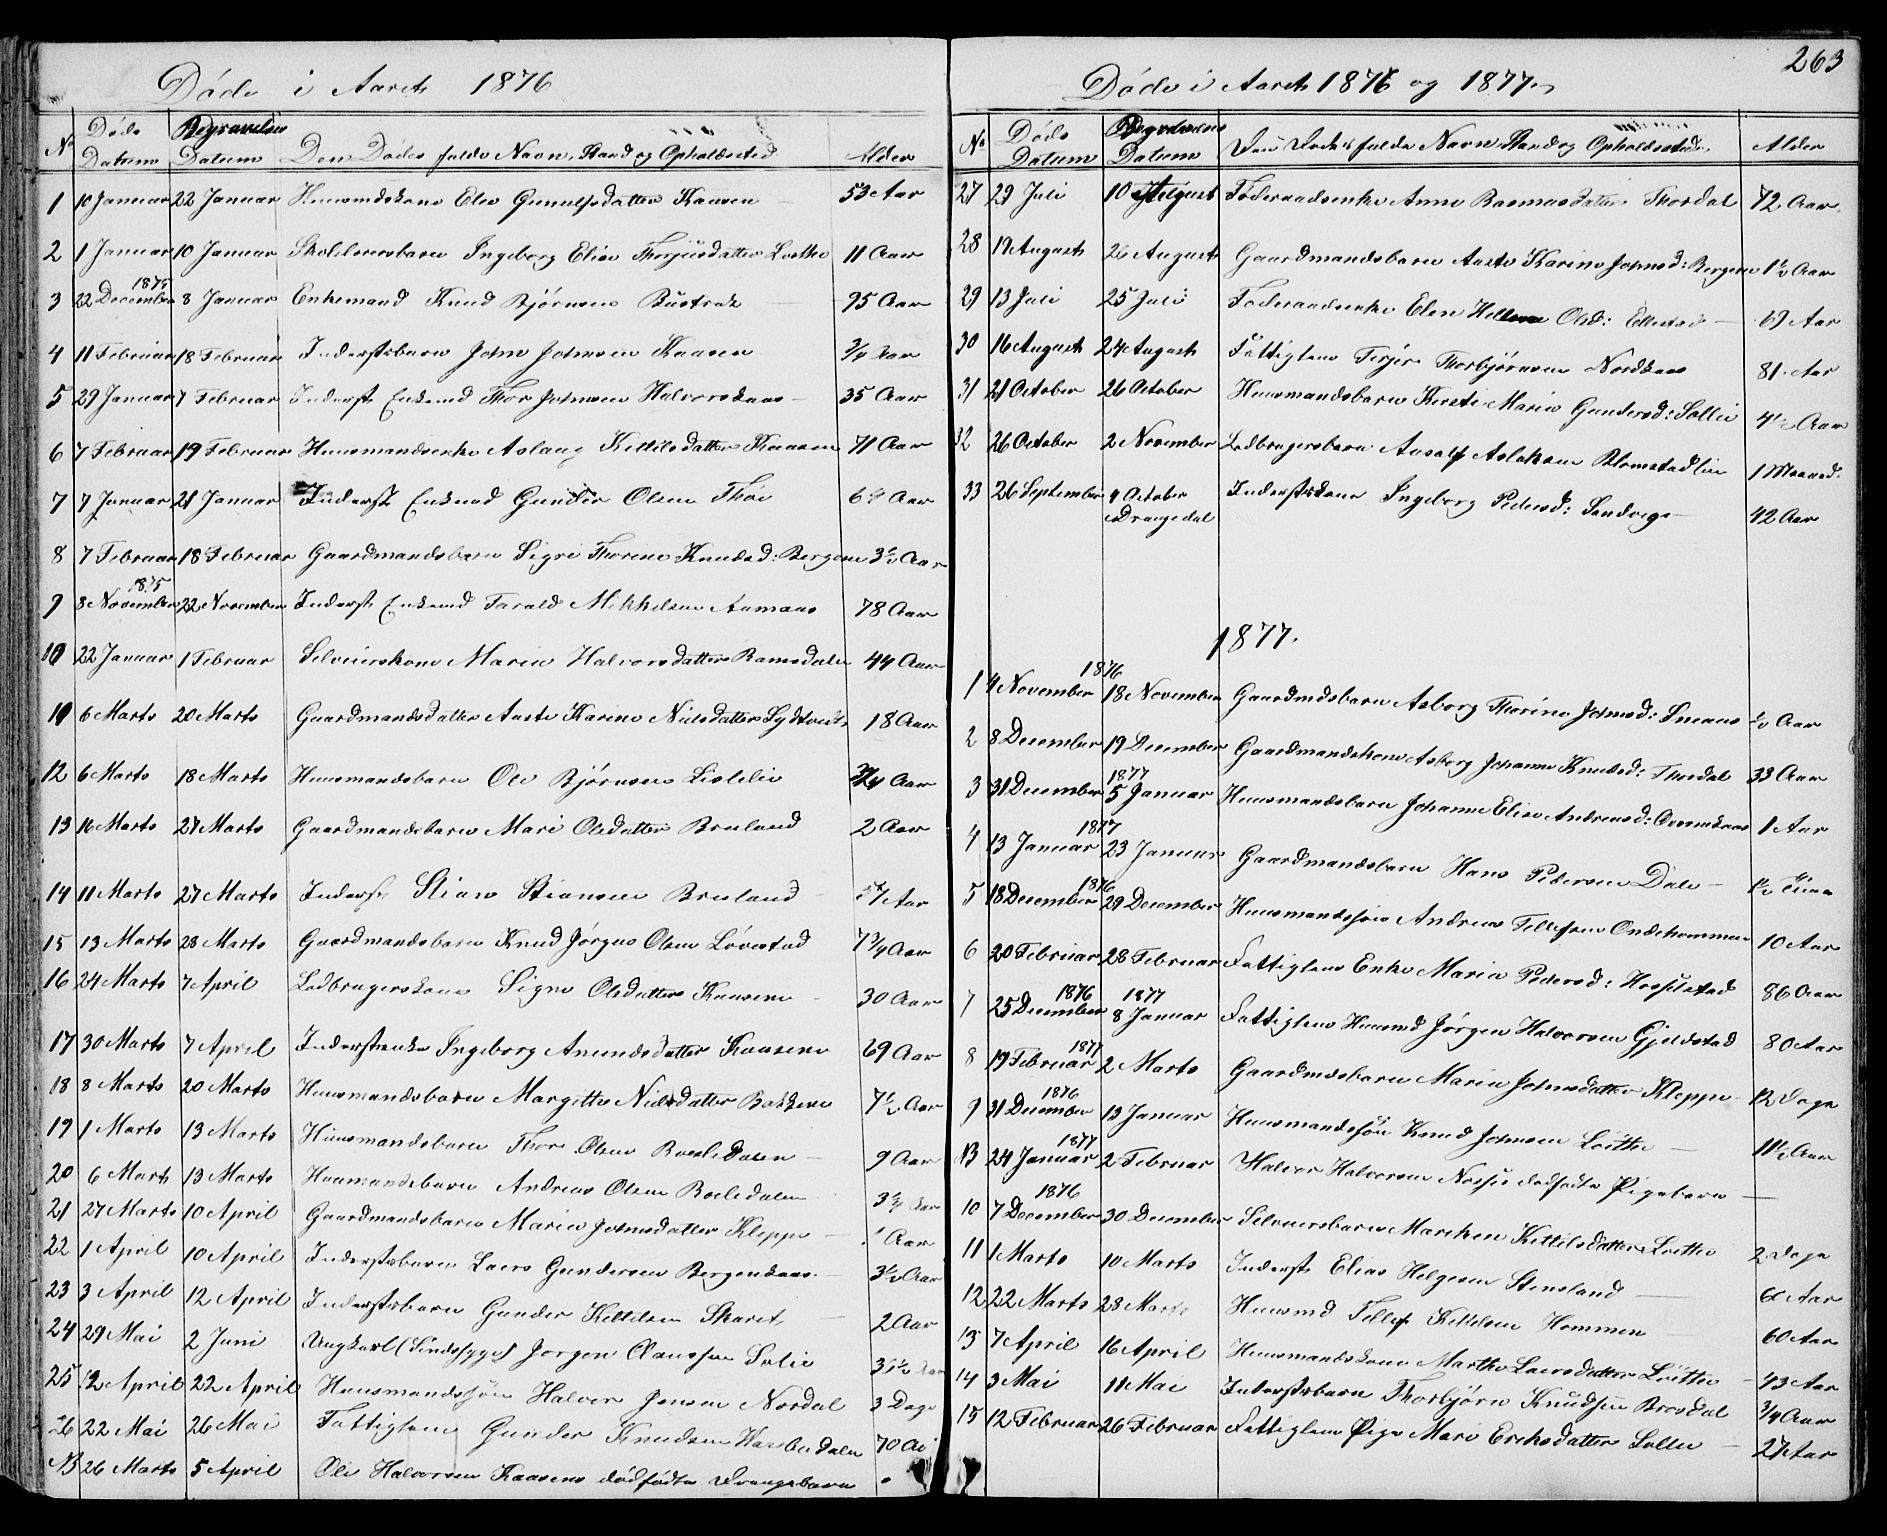 263
Døde i Aaret 1876
No Døds Datum Begravelses Datum Den Dødes fulde Navn, Stand og Opholdssted Alder
1 10 Januar 22 Januar Huusmdskone Elen Gunulfsdatter Kaasen 53 Aar
2 1 Januar 10 Januar Skolelærersbarn Ingeborg Elise Therjusdatter 11 Aar
3 22 December 1875 8 Januar Enkemand Knud Bjørnsen 95 Aar
4 11 Februar 18 Februar Inderstsbarn John Johnsen Kaasen 3/4 Aar
5 29 Januar 7 Februar Inderst Enkemd Thor Johnsen Halvorskaas 35 Aar
6 7 Februar 19 Februar Huusmandsenke Aslaug Kittilsdatter Kaasen 71 Aar
7 7 Januar 21 Januar Inderst Enkemd Gunder Olsen Aar
8 7 Februar 18 Februar Gaardmandsbarn Sigri Thorine Knudsd: Bergene 3 1/2 Aar
9 8 November 1875 22 November Inderst Enkemd Tarald Mikkelsen Aamaas 78 Aar
10 22 Januar 1 Februar Selveierskone Maren Halvorsdatter Ramsdalen 44 Aar
6 Marts 20 Marts Gaardmandsdatter Aaste Karine Nielsdatter 18 Aar
12 6 Marts 18 Marts Huusmandsbarn Ole Bjørnsen Listelie 3/4 Aar
13 16 Marts 27 Marts Gaardmandsbarn Mari Olsdatter Breland 2 Aar
14 11 Marts 27 Marts Inderst Stian Stiansen Breland Aar
15 13 Marts 28 Marts Gaardmandsbarn Knud Jørgen Olsen Løvestad 7 3/4 Aar
16 24 Marts 7 April Ledbrugerskone Signe Olsdatter Kaasene 30 Aar
17 30 Marts 7 April Inderstenke Ingeborg Anundsdatter Kaasene 69 Aar
18 8 Marts 20 Marts Huusmandsbarn Margitte Nielsdatter Bakkene 7 1/2 Aar
19 1 Marts 13 Marts Huusmandsbarn Thor Olsen Roelidalen 9 Aar
20 6 Marts 13 Marts Huusmandsbarn Andreas Olsen Roelidalen 3 Aar
21 27 Marts 10 April Gaardmandsbarn Maren Johnsdatter Kleppe 1 Aar
22 1 April 10 April Inderstsbarn Laers Gundersen Bergenkaas 3 1/2 Aar
23 3 April 12 April Inderstsbarn Gunder Kittelsen Skaret 2 Aar
24 29 Mai 2 Juni Ungkarl (Sindssyge) Jørgen Clausen Solie Aar
25 12 April 22 April Huusmandssøn Halvor Jensen Nordal 3 Dage
26 22 Mai 26 Mai Fattiglem Gunder Knudsen 70 Aar
NB 26 Marts 5 April Ole Halvorsen Kaasens dødfødte Drengebarn
Døde i Aaret 1876 og 1877
No Døds Datum Begravelses Datum Den Dødes fulde Navn Stand og Opholdssted Alder
27 29 Juli 10 August Føderaadsenke Anne Rasmusdatter Thordal 72 Aar
28 19 August 26 August Gaardmandsbarn Aaste Karine Johnsd: Bergene 1 1/2 Aar
29 13 Juli 25 Juli Føderaadsenke Elen Helene Olsd: Ellestad 69 Aar
30 16 August 24 August Fattiglem Terjer Thorbjørnsen Nordkaas 81 Aar
31 21 October 26 October Huusmandsbarn Kirsti Maria Gundersd: Sollie 4 1/2 Aar
32 26 October 2 November Ledbrugersbarn Aasolf Aslaksen Blomstadlien 1 Maaned
33 26 September 4 October Drangedal Inderstskone Ingeborg Pedersd: Sandvige 42 Aar
1877.
1 4 November 1876 18 November Gaardmdsbarn Asborg Thorine Johnsd: 1/2 Aar
2 8 December 19 December Gaardmandskone Asborg Johanne Knudsd: Thordal 33 Aar
3 31 December 1877 5 Januar Huusmandsbarn Johanne Elise Andreasd: 1 Aar
4 13 Januar 1877 23 Januar Gaardmandsbarn Hans Pedersen Dale 1/2 Time
5 18 December 1876 29 December Huusmandssøn Andreas Tellefsen 10 Aar
6 20 Februar 28 Februar Fattiglem Enke Maria Pedersd: 86 Aar
7 25 December 1876 8 Januar 1877 Fattiglem Huusmd Jørgen Halvorsen Gjeldstad 80 Aar
8 19 Februar 1877 2 Marts Gaardmdsbarn Maren Johnsdatter Kleppe 12 Dage
9 31 December 1876 13 Januar Huusmandssøn Knud Johnsen Løitte 11 1/2 Aar
NB 24 Januar 1877 2 Februar Halvor Halvorsen dødfødte Pigebarn
10 7 December 1876 30 December Selveiersbarn Mareken Kittilsdatter Løitte 2 Dage
11 1 Marts 10 Marts Inderst Elias Helgesen Stensland Aar
12 22 Marts 28 Marts Huusmd Tellef Kittelsen Hommen 60 Aar
13 7 April 16 April Huusmandskone Marthe Laersdatter Løitte 43 Aar
14 3 Mai 11 Mai Inderstsbarn Thorbjørn Knudsen Brosdal 3/4 Aar
15 12 Februar 26 Februar Fattiglem Pige Mari Eriksdatter Sollie 27 Aar